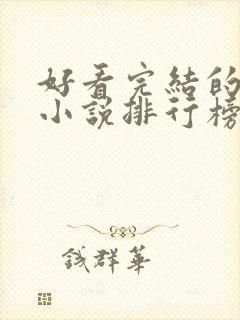 好看完結的
小說排行榜
錢群華